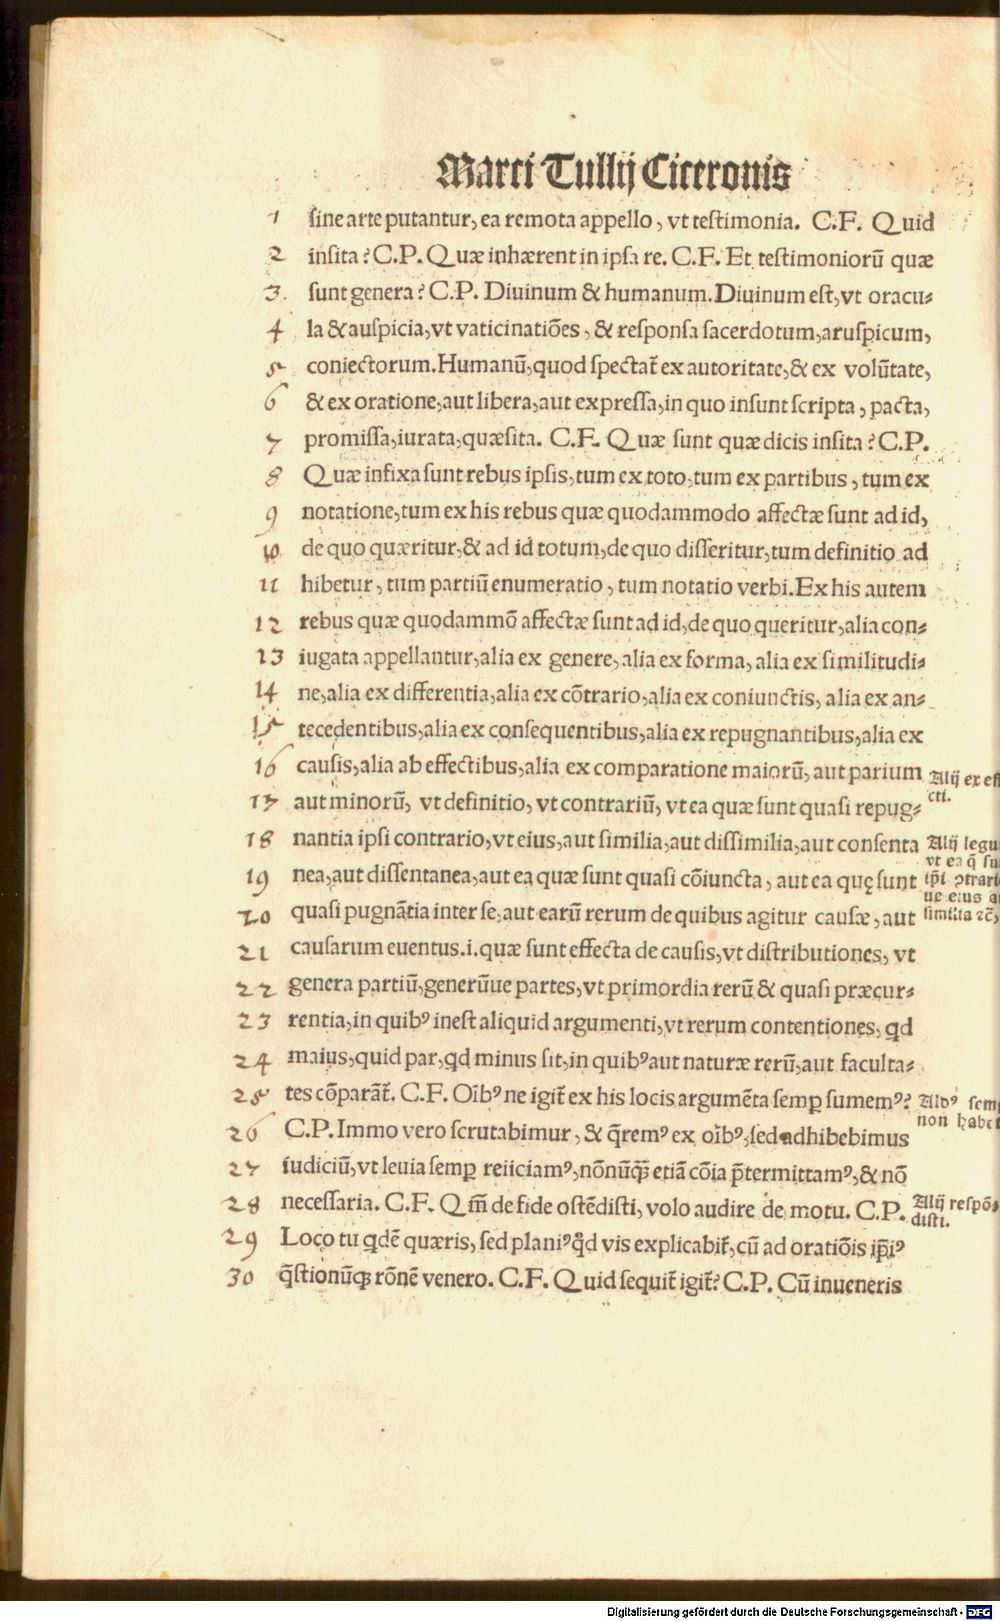 Marci Tullij Ciceronis
1 sine arte putantur, ea remota appello, vt testimonia. C.F. Quid
2 insita? C.P. Quæ inhærent in ipsa re. C.F. Et testimoniorū quæ
3. sunt genera? C.P. Diuinum & humanum. Diuinum est, vt oracu-
4 la & auspicia, vt vaticinatiões, & responsa sacerdotum, aruspicum,
5 coniectorum. Humanū, quod spectat̃ ex autoritate, & ex volūtate,
6 & ex oratione, aut libera, aut expressa, in quo insunt scripta, pacta,
7 promissa, iurata, quæsita. C.F. Quæ sunt quæ dicis insita? C.P.
8 Quæ infixa sunt rebus ipsis, tum ex toto, tum ex partibus, tum ex
9 notatione, tum ex his rebus quæ quodammodo affectæ sunt ad id,
10 de quo quæritur, & ad id totum, de quo disseritur, tum definitio ad
11 hibetur, tum partiū enumeratio, tum notatio verbi. Ex his autem
12 rebus quæ quodammō affectæ sunt ad id, de quo queritur, alia con-
13 iugata appellantur, alia ex genere, alia ex forma, alia ex similitudi-
14 ne, alia ex differentia, alia ex cōtrario, alia ex coniunctis, alia ex an-
15 tecedentibus, alia ex consequentibus, alia ex repugnantibus, alia ex
16 causis, alia ab effectibus, alia ex comparatione maiorū, aut parium
Alij ex eff
cti.
17 aut minorū, vt definitio, vt contrariū, vt ea quæ sunt quasi repug-
18 nantia ipsi contrario, vt eius, aut similia, aut dissimilia, aut consenta
Alij legu
vt ea q̄ su
ip̄i ꝓtrari
ue eius a
similia ⁊c̄,
19 nea, aut dissentanea, aut ea quæ sunt quasi cōiuncta, aut ea quę sunt
20 quasi pugnātia inter se, aut earū rerum de quibus agitur causæ, aut
21 causarum euentus .i. quæ sunt effecta de causis, vt distributiones, vt
22 genera partiū, generūue partes, vt primordia rerū & quasi præcur-
23 rentia, in quibꝰ inest aliquid argumenti, vt rerum contentiones, qd
24 maius, quid par, qd minus sit, in quibꝰ aut naturæ rerū, aut faculta-
25 tes cōparāt̃. C.F. Oībꝰ ne igit̃ ex his locis argumēta semꝑ sumemꝰ?
non habet
26 C.P. Immo vero scrutabimur, & q̄remꝰ ex oībꝰ, sed adhibebimus
27 iudiciū, vt leuia semꝑ reiiciamꝰ, nōnūꝗ̄ etiā cōia p̄termittamꝰ, & nō
28 necessaria. C.F. Qm̄ de fide ostēdisti, volo audire de motu. C.P.
Alij respō-
disti.
29 Loco tu qdē quæris, sed planiꝰ qd vis explicabit̃, cū ad oratiōis ip̄iꝰ
30 q̄stionūꝗ rōnē venero. C.F. Quid sequit̃ igit̃? C.P. Cū inueneris
Digitalisierung gefördert durch die Deutsche Forschungsgemeinschaft - DFG